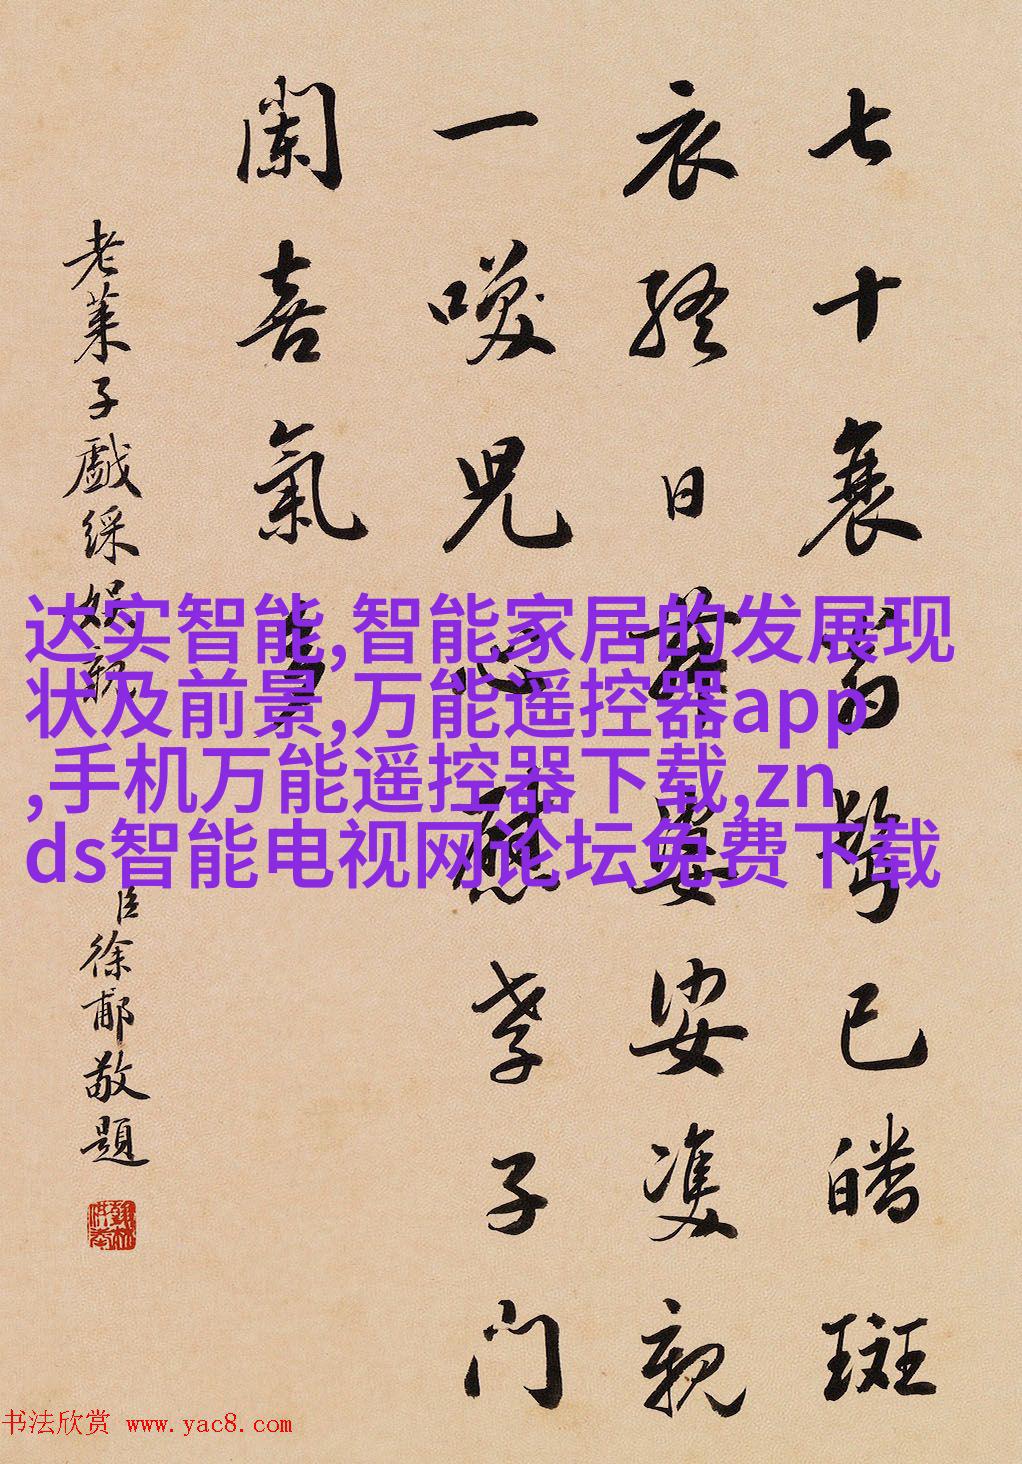 七十衰翁髩已皤斑
衣終日舞婆娑雙親
一兒心慰孝子門
闌喜氣多
老萊子戲綵娛親
臣徐郙敬題
达实智能,智能家居的发展现
状及前景,万能遥控器app
,手机万能遥控器下载,zn
ds智能电视网论坛免费下载
书法欣赏 www.yac8.com